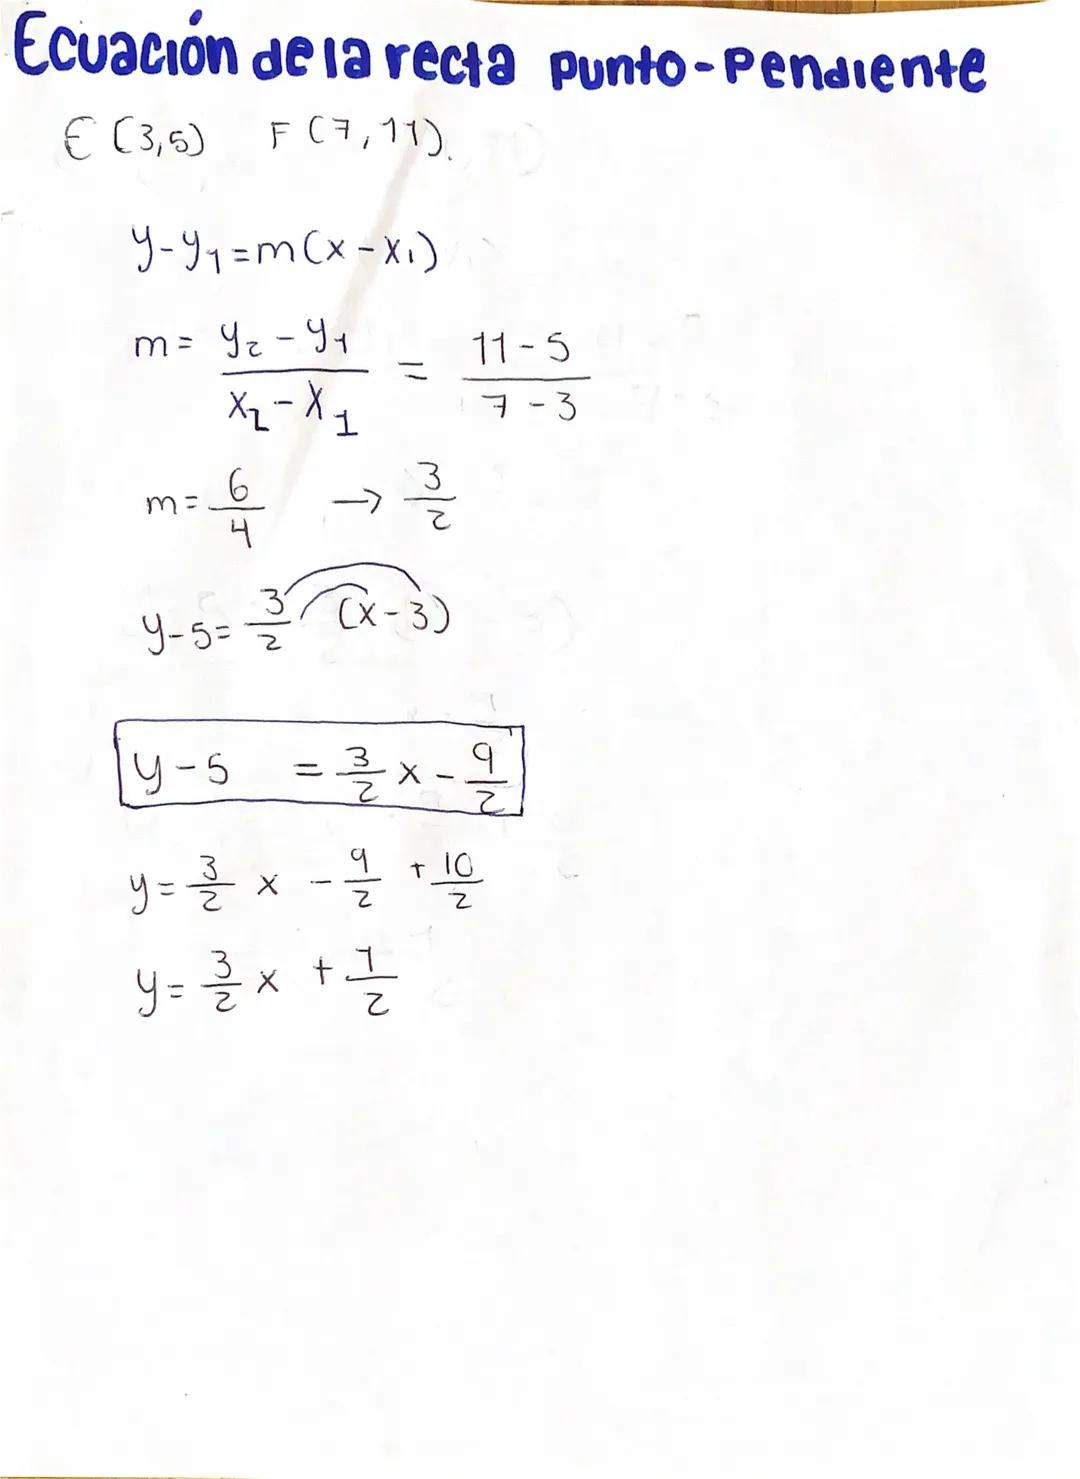 Ecuación de la recta punto-Pendiente
E (3,5) F (7,11).
y-y₁=m(x-x₁)
m= y₂-y₁ / x₂-x₁ = 11-5 / 7-3
m= 6/4 → 3/2
y-5= 3/2 (x-3)
y-5 = 3/2 x - 9/2
y= 3/2 x - 9/2 + 10/2
y= 3/2 x + 1/2